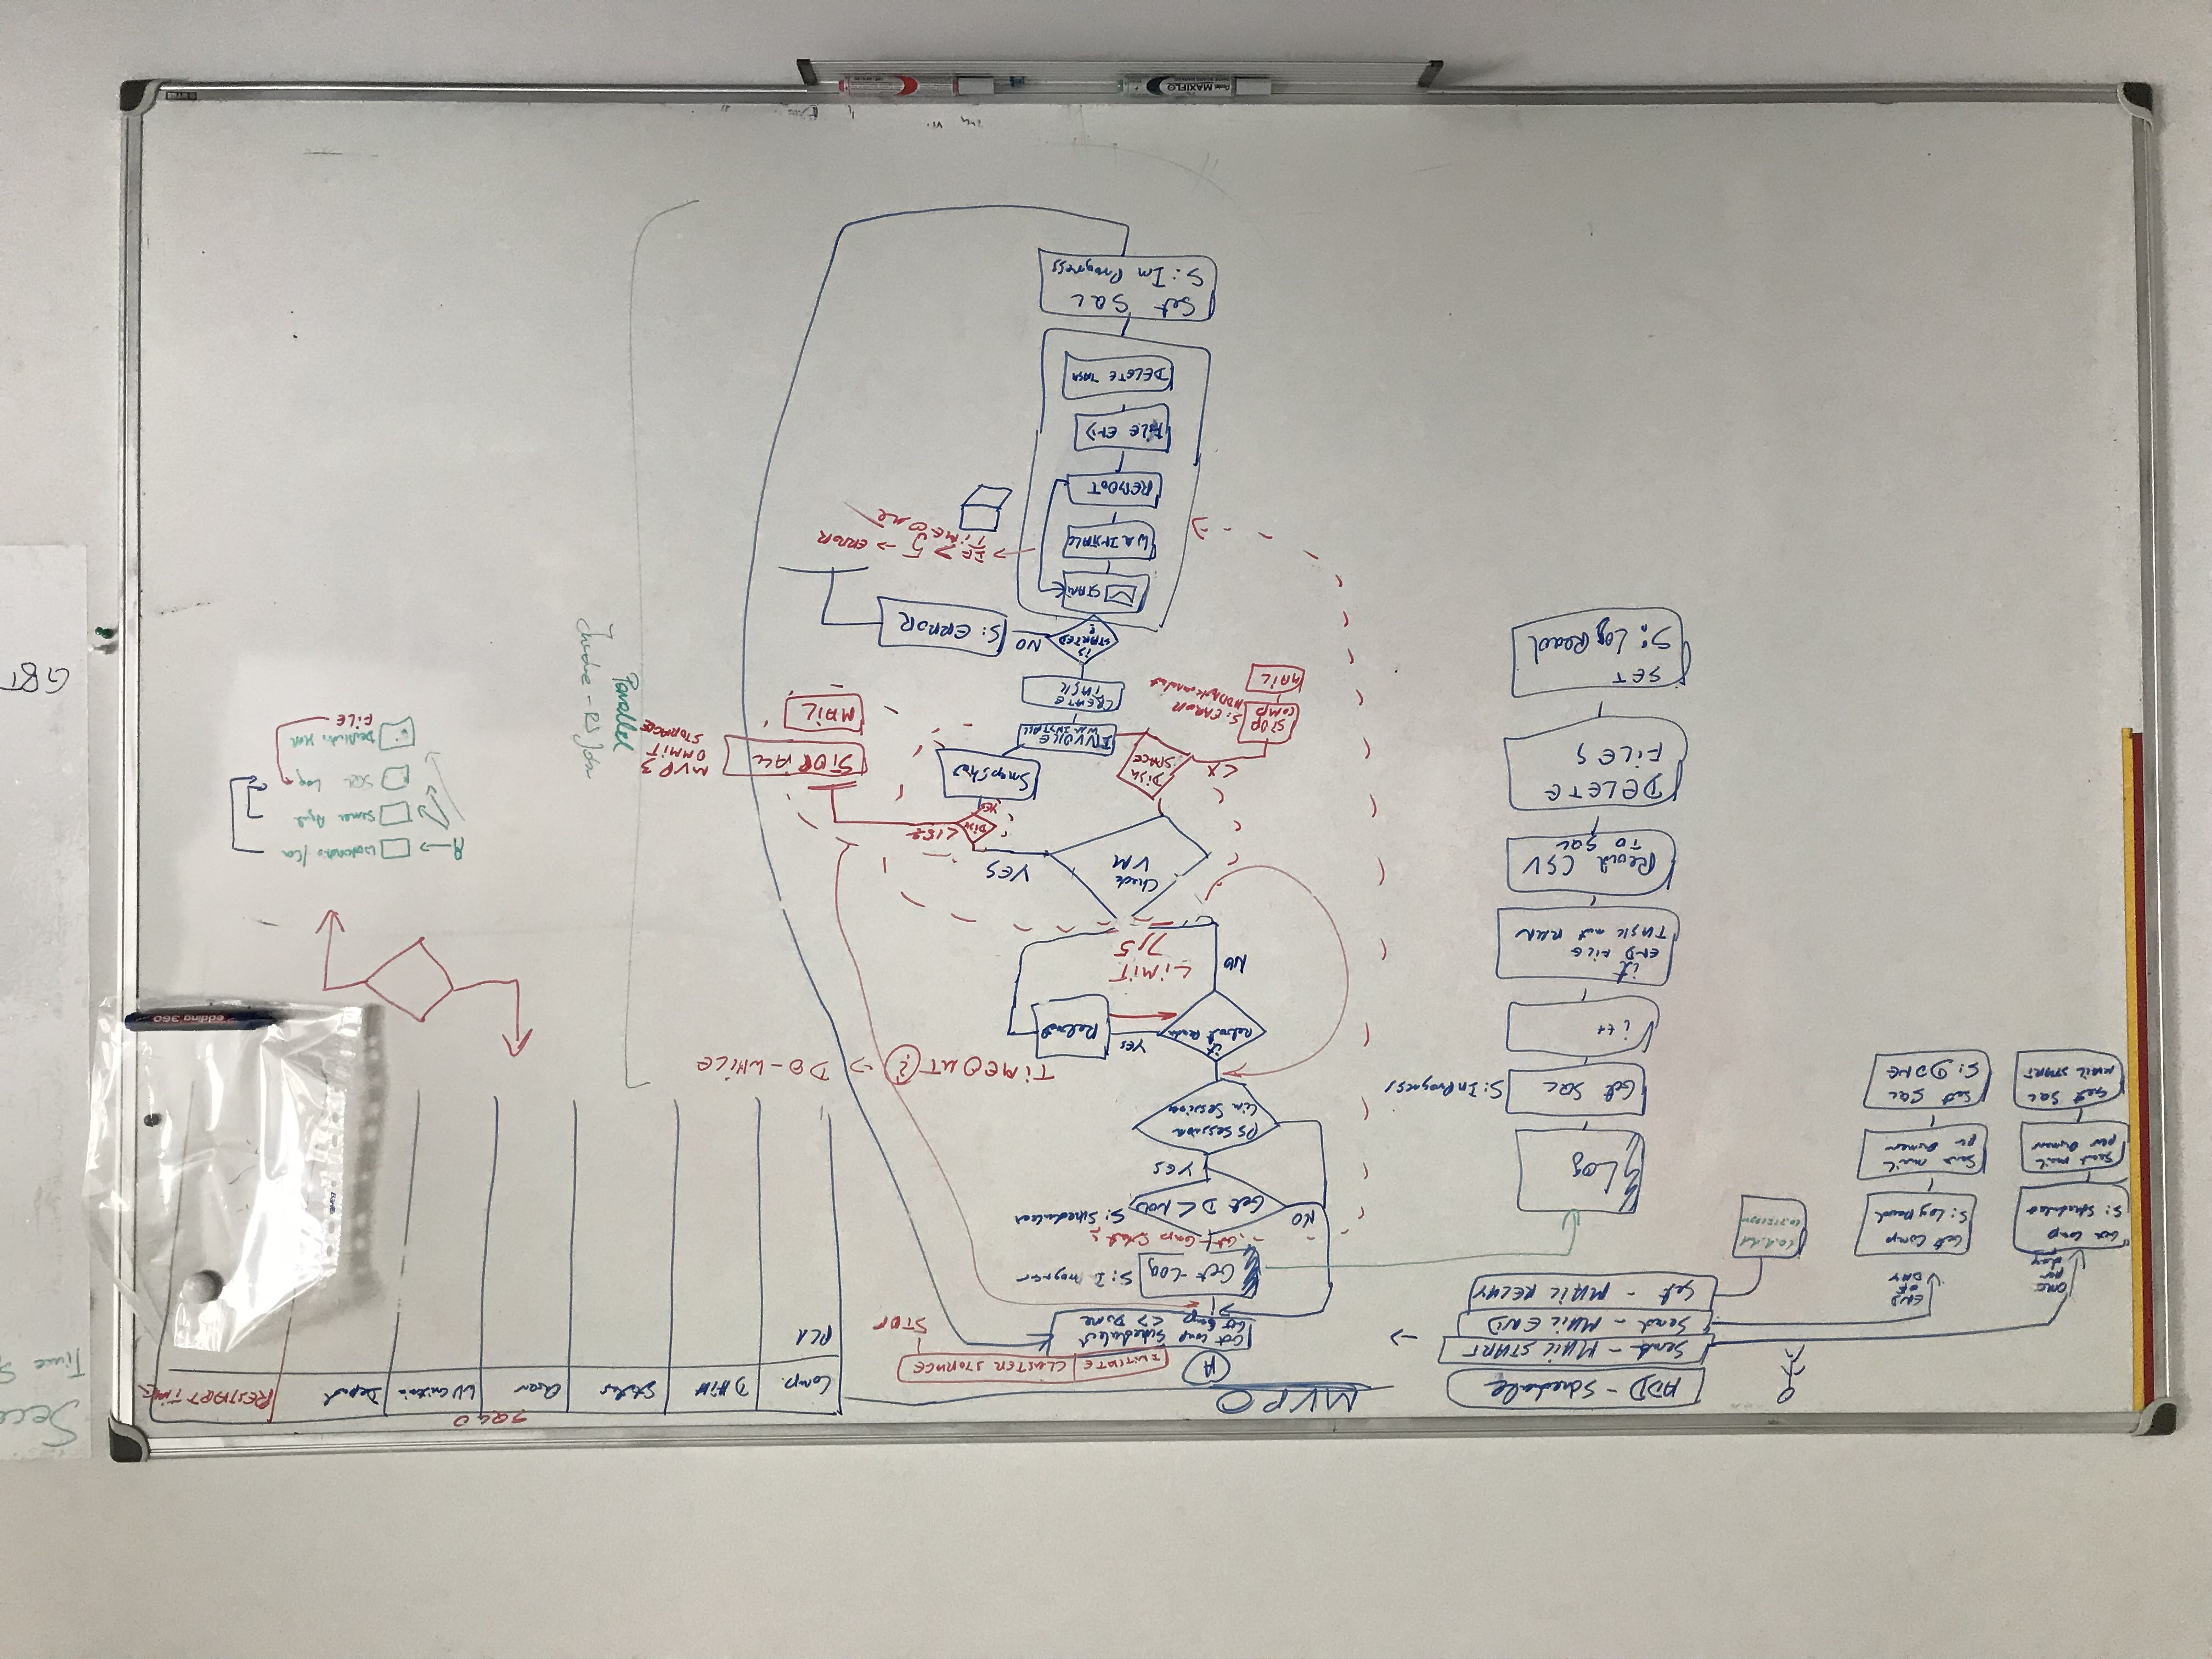 MVP 0
ADD - Schedule
Send - MAIL START
Send - MAIL END
Set - MAIL RELAY
ONE
per
day
END
OF
DAY
Get Comp
S: Scheduled
Send mail
per Owner
Set SQL
MAIL START
Get Comp
S: Log Read
Send mail
per Owner
Set SQL
S: DONE
Log
Get SQL
S: In Progress
i++
if
END FILE
TASK not RUN
Read CSV
TO SQL
DELETE
FILES
SET
S: Log Read
A
INITIATE
CLUSTER STORAGE
STOP
Get Comp Scheduled
Get Comp <> Done
Get-Log
S: In Progress
Get-Comp
NO
Get D < NOW
S: Scheduled
YES
PS Session
Cim Session
TIMEOUT
-> DO-WHILE
if
Reboot
YES
Reboot
NO
LIMIT
5
Check
VM
YES
Disk
YES
Snapshot
STOP ALL
MAIL
MVP 3
OMMIT
STORAGE
<X
DISK
SPACE
STOP
COMP
S: ERROR
MAIL
INVOKE
WU INSTALL
CREATE
TASK
is
STARTED
?
NO
S: ERROR
START
WU INSTALL
REBOOT
FILE END
DELETE TASK
IF > 5 -> ERROR
TIMEOUT
Set SQL
S: In Progress
Comp.
DATA
Status
Owner
WU Criteria
Depend
RESTART TIME
PC1
Parallel
SQL Log
FILE
edding 360
Pentel MAXIFLO
Time S
GBT